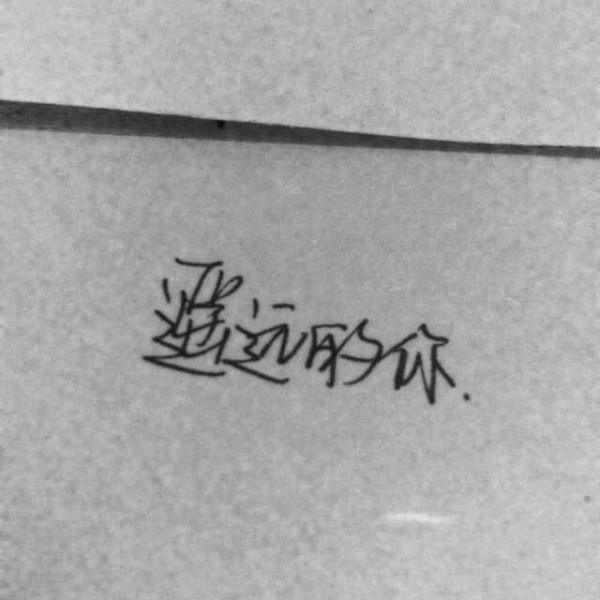 遥远的你.